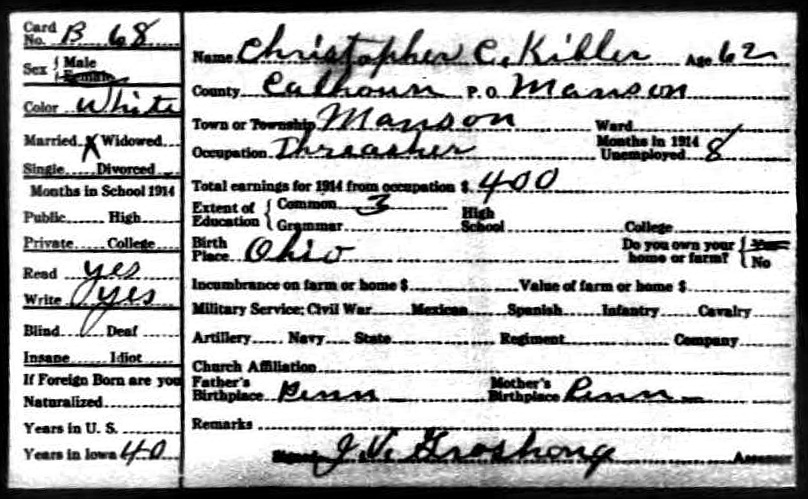 Card No. B 68
Sex { Male Female
Color White
Married X Widowed
Single Divorced
Months in School 1914
Public High
Private College
Read yes
Write yes
Blind Deaf
Insane Idiot
If Foreign Born are you
Naturalized
Years in U. S.
Years in Iowa 40
Name Christopher C. Kibler Age 62
County Calhoun P. O. Manson
Town or Township Manson Ward
Occupation Threasher Months in 1914 Unemployed 8
Total earnings for 1914 from occupation $ 400
Extent of Education { Common 3 Grammar High School College
Birth Place Ohio Do you own your home or farm? { Yes No
Incumbrance on farm or home $ Value of farm or home $
Military Service; Civil War Mexican Spanish Infantry Cavalry
Artillery Navy State Regiment Company
Church Affiliation
Father's Birthplace Penn Mother's Birthplace Penn
Remarks
J. V. Groshong Assessor